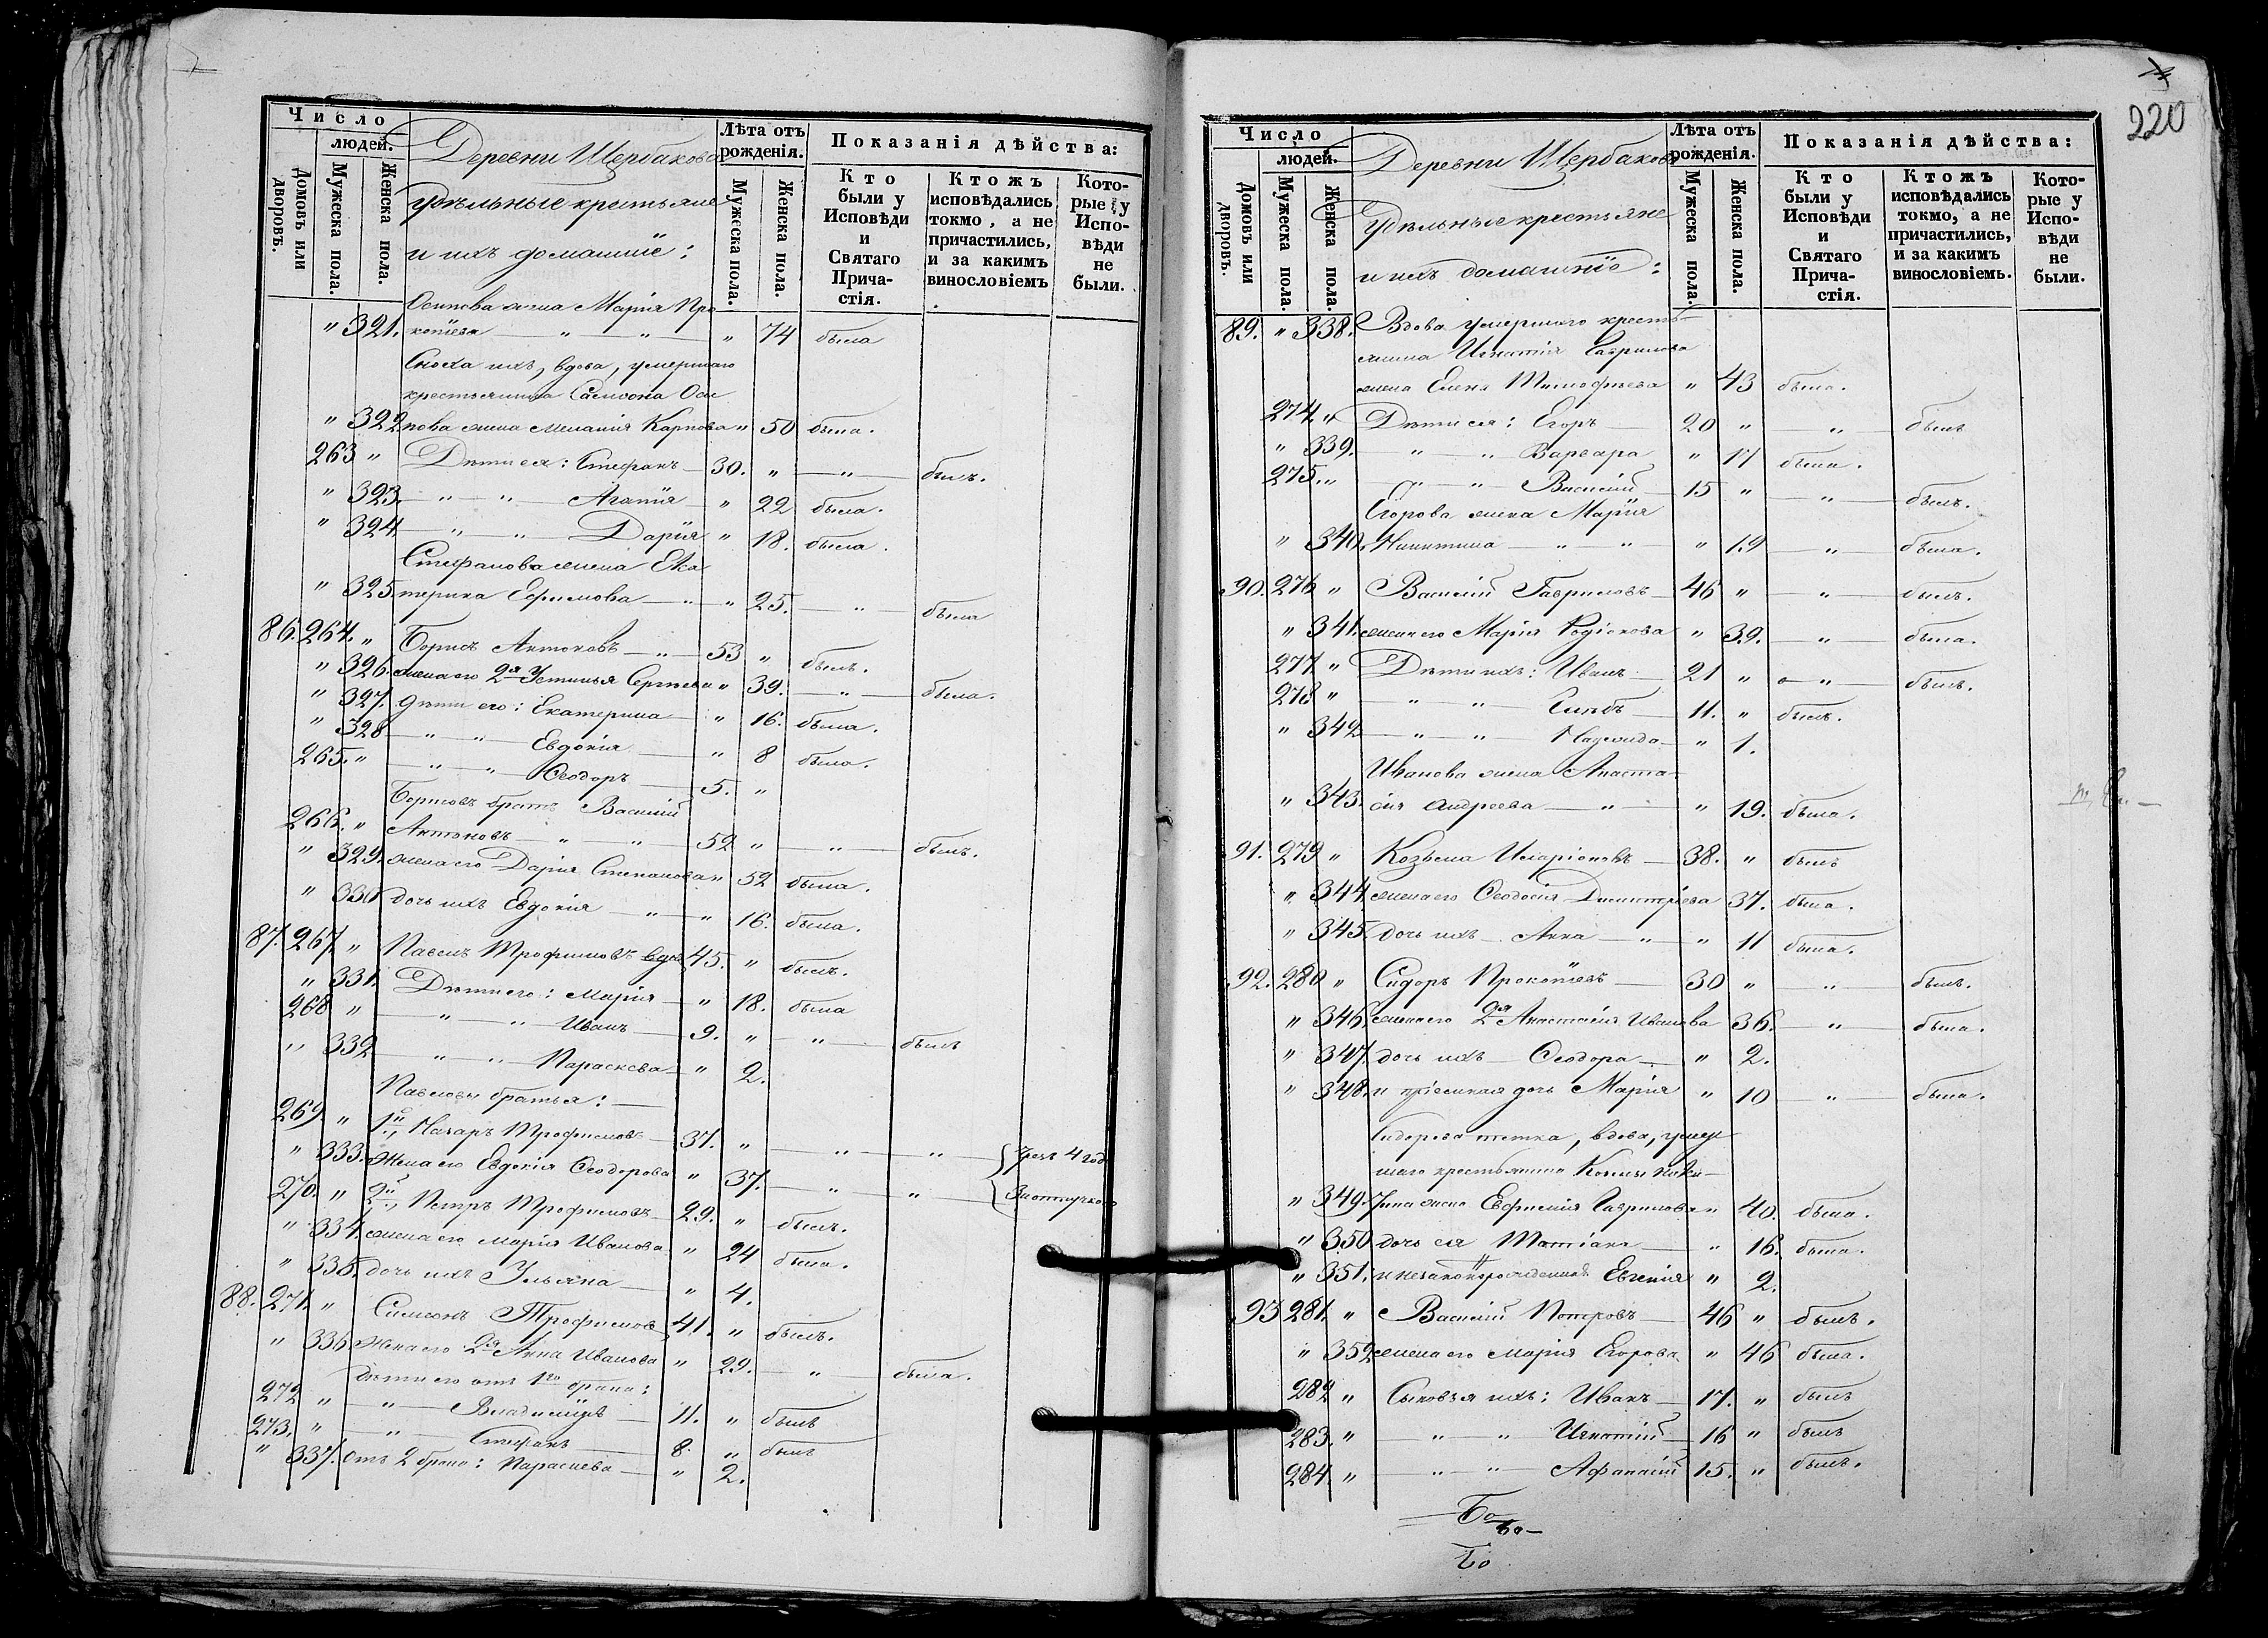 Число
людей.
Домовъ или дворовъ.
Мужеска пола.
Женска пола.
Деревни Щербакова
Удѣльные крестьяне
и ихъ домашніе:
Лѣта отъ рожденія.
Мужеска пола.
Женска пола.
Показанія дѣйства:
Кто были у Исповѣди и Святаго Прича-стія.
Ктожъ исповѣдались токмо, а не причастились, и за какимъ винословіемъ.
Кото-рые у Испо-вѣди не были.
Осипова жена Марія Про
" 321. копіева — " — " — " 74 была
Сноха ихъ, вдова, умершаго
крестьянина Самсона Оси
" 322 пова жена Меланія Карпова " 50 была.
263 " Дѣти ея: Стефанъ — 30. " — " — былъ.
" 323. — " — " — Агапія — " 22 была.
" 324 — " — " — Дарія " 18. была.
Стефанова жена Ека
" 325. терина Ефимова — " — " 25. — " — была
86. 264. " Борисъ Антоновъ — " — 53 " былъ.
" 326. жена его 2я Устинья Сергѣева " 39. — " — была.
" 327. дѣти его: Екатерина — " 16. была.
" 328 — " — " — Евдокія — " 8 была.
265. " — " — " — Ѳеодоръ — 5. "
Борисовъ братъ Василій
266. " Антоновъ — " — " — 52 " — " — былъ.
" 329. жена его Дарія Степанова " 52 была.
" 330 дочь ихъ Евдокія — " — " 16. была.
87. 267. " Павелъ Трофимовъ вдов 45. " былъ.
" 331. Дѣти его: Марія — " 18. была
268 " — " — " — Иванъ — 9. " — " — былъ
" 332 — " — " — Параскева — " 2.
Павловы братья: —
269 " 1й, Назаръ Трофимовъ — 37. " — " — " — Чрез 4 год
" 333. Жена его Евдокія Ѳеодорова " 37. — " — " — За отлучкою
270. " 2й, Петръ Трофимовъ — 29. " былъ.
" 334. жена его Марія Иванова " 24 была.
" 335. дочь ихъ Ульяна — " 4.
88. 271. " Симеонъ Трофимовъ 41. " былъ.
" 336 Жена его 2я Анна Иванова " 29. — " — была.
Дѣти его отъ 1го брака:
272 " — " — Владиміръ — 11. " былъ
273. " — " — Стефанъ — 8. " былъ
" 337. Отъ 2 брака: Параскева — " 2.
220
Число
людей.
Домовъ или дворовъ.
Мужеска пола.
Женска пола.
Деревни Щербакова
Удѣльные крестьяне
и ихъ домашніе:
Лѣта отъ рожденія.
Мужеска пола.
Женска пола.
Показанія дѣйства:
Кто были у Исповѣди и Святаго Прича-стія.
Ктожъ исповѣдались токмо, а не причастились, и за какимъ винословіемъ.
Кото-рые у Испо-вѣди не были.
89. " 338. Вдова умершаго кресть-
янина Игнатія Гаврилова
жена Елена Тимофѣева " 43 была.
274. " Дѣти ея: Егоръ — 20 " — " — былъ
" 339. — " — " Варвара " 17 была.
275. " — " — " Василій — 15 " — " — былъ.
Егорова жена Марія
" 340. Никитина — " — " — " 19 — " — была.
90. 276 " Василій Гавриловъ — 46 " — " — былъ.
" 341. жена его Марія Родіонова " 39. — " — была.
277 " Дѣти ихъ: Иванъ — 21 " — " — былъ.
278 " — " — " — Глѣбъ — 11. " былъ.
" 342 — " — " — Надежда — " 1.
Иванова жена Анаста-
" 343. сія Андреева — " — " 19. была.
91. 279 " Козьма Иларіоновъ — 38. " былъ
" 344 жена его Ѳеодосія Димитріева 37. была.
" 345. дочь ихъ — Анна — " — " 11 была.
92. 280 " Сидоръ Прокопіевъ — 30 " — " — былъ.
" 346. жена его 2я Анастасія Иванова 36. — " — была.
" 347. дочь ихъ — Ѳеодора — " 2.
" 348. и пріемная дочь Марія " 10 — " — была.
Сидорова тетка, вдова, умер
шаго крестьянина
" 349. жена Евфимія Гаврилова " 40. была.
" 350 дочь ея Татіана — " 16. была.
" 351. и незаконорожденная Евгенія " 2.
93 281. " Василій Петровъ — 46 " былъ.
" 352 жена его Марія Егорова " 46 была.
282 " Сыновья ихъ: Иванъ — 17. " былъ
283. " — " — " — Игнатій — 16 " былъ
284. " — " — " — Афанасій 15. " былъ.